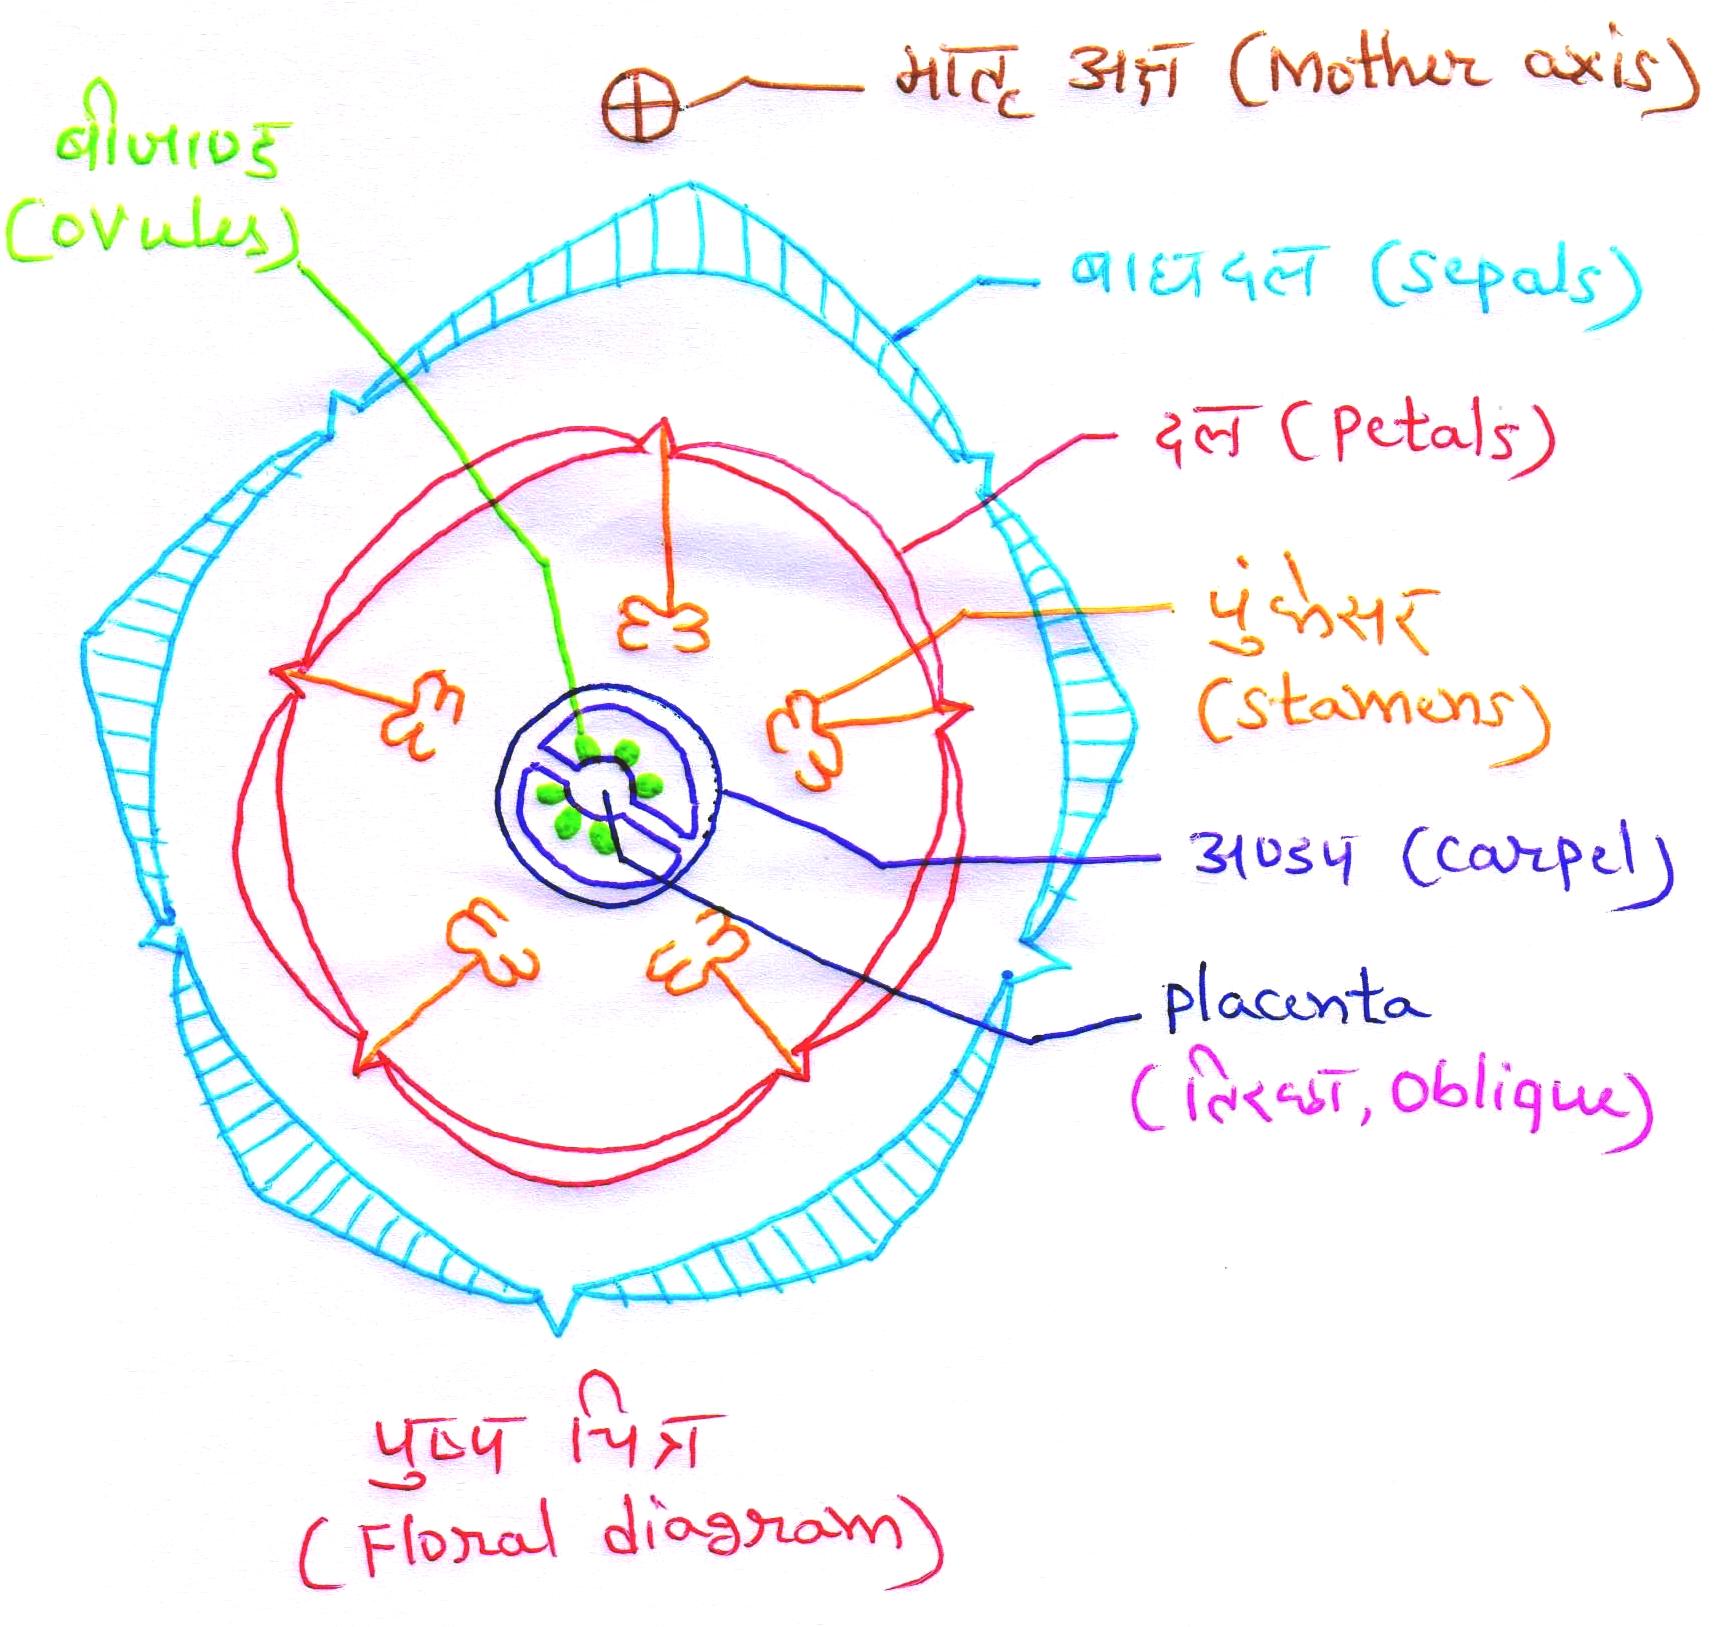 मातृ अक्ष (Mother axis)
बीजाण्ड
(ovules)
बाह्यदल (Sepals)
दल (Petals)
पुंकेसर
(Stamens)
अण्डप (Carpel)
Placenta
(तिरछा, Oblique)
पुष्प चित्र
(Floral diagram)